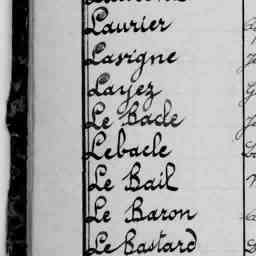 Laurier
Lavigne
Layez
Le Bacle
Lebacle
Le Bail
Le Baron
Le Bastard